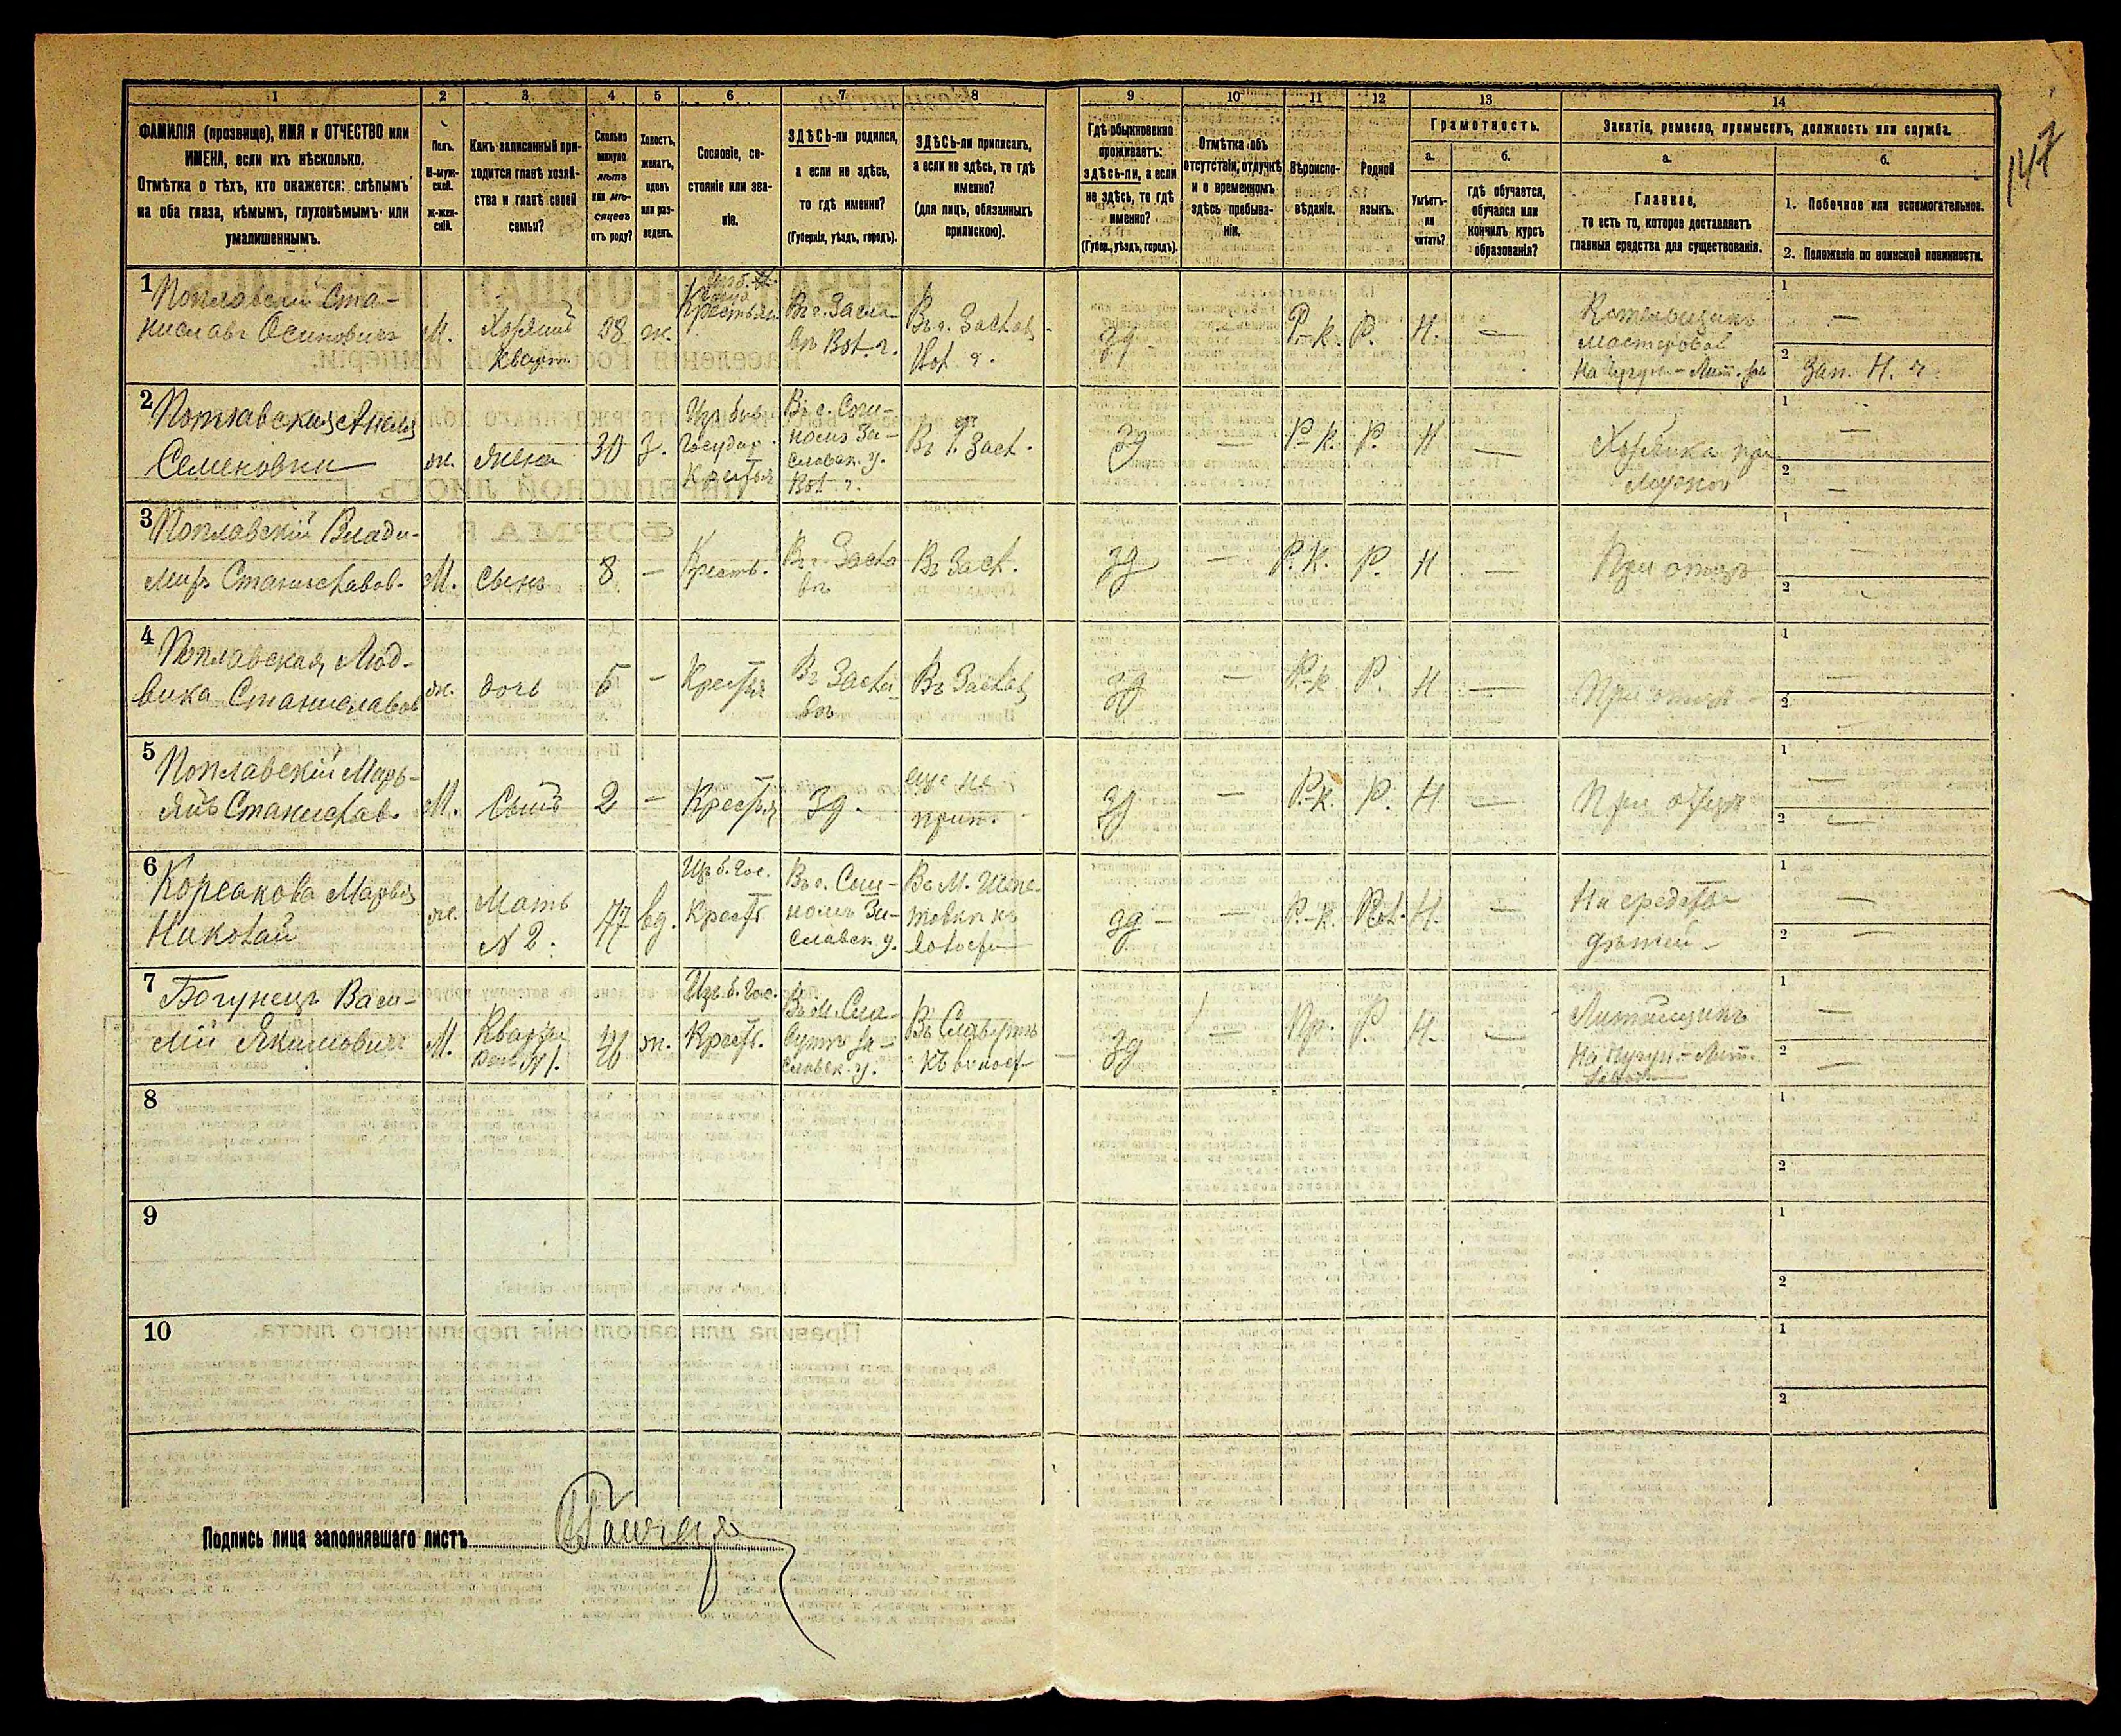 1
2
3
4
5
6
7
8
9
10
11
12
13
14
147
ФАМИЛІЯ (прозвище), ИМЯ и ОТЧЕСТВО или
ИМЕНА, если ихъ нѣсколько.
Отмѣтка о тѣхъ, кто окажется: слѣпымъ
на оба глаза, нѣмымъ, глухонѣмымъ или
умалишеннымъ.
Полъ.
М-муж-
ской.
Ж-жен-
скій.
Какъ записанный при-
ходится главѣ хозяй-
ства и главѣ своей
семьи?
Сколько
минуло
лѣтъ
или мѣ-
сяцевъ
отъ роду?
Холостъ,
женатъ,
вдовъ
или раз-
веденъ.
Сословіе, со-
стояніе или зва-
ніе.
ЗДѢСЬ-ли родился,
а если не здѣсь,
то гдѣ именно?
(Губернія, уѣздъ, городъ).
ЗДѢСЬ-ли приписанъ,
а если не здѣсь, то гдѣ
именно?
(для лицъ, обязанныхъ
припискою).
Гдѣ обыкновенно
проживаетъ:
здѣсь-ли, а если
не здѣсь, то гдѣ
именно?
(Губер., уѣздъ, городъ).
Отмѣтка объ
отсутствіи, отлучкѣ
и о временномъ
здѣсь пребыва-
ніи.
Вѣроиспо-
вѣданіе.
Родной
языкъ.
Грамотность.
а.
Умѣетъ-
ли
читать?
б.
гдѣ обучается,
обучался или
кончилъ курсъ
образованія?
Занятіе, ремесло, промыселъ, должность или служба.
а.
Главное,
то есть то, которое доставляетъ
главныя средства для существованія.
б.
1. Побочное или вспомогательное.
2. Положеніе по воинской повинности.
1
Поплавскій Ста-
ниславъ Осиповичъ
М.
Хозяинъ
кварт.
38
ж.
Крестьян.
Въ г. Засла-
вѣ Вол. г.
Въ г. Заслав
Вол. г.
зд
—
Р.-к.
Р.
Н.
—
Котельщикъ
мастеровой
На чугун.-Лит. зав
1 —
2 Зап. Н. ч.
2
Поплавская Анеля
Семеновна
ж.
жена
30
з.
Изъ быв.
Государ.
Крестьян
Заславск. у.
Вол. г.
Въ г. Засл.
зд
—
Р-к.
Р.
Н
—
Хозяйка при
мужѣ
1 —
2 —
3
Поплавскій Влади-
миръ Станиславов.
М.
Сынъ
8
—
Кресть.
Въ г. Засла
вѣ
Въ Засл.
зд
—
Р.К.
Р.
Н
—
При отцѣ
1 —
2 -
4
Поплавская Люд-
вика Станиславов
ж.
дочь
5
—
Крестьян
Въ Засла
вѣ
Въ Заслав
зд
—
Р.-к
Р.
Н
—
При отцѣ
1
2 —
5
Поплавскій Марь-
янъ Станислав.
М.
Сынъ
2
—
Крестьян
Зд.
еще не
прип.
зд
—
Р.-к.
Р.
Н
—
При отцѣ
1 —
2 —
6
Корсакова Марья
Николай
ж.
Мать
N 2.
47
вд.
Изъ б. Гос.
Крест
Заславск. у.
Въ М. Шепе-
товкѣ къ
волости
зд
—
Р.-к.
Пол.
Н.
—
На средства
дѣтей
1 —
2 —
7
Богунецъ Васи-
лій Якимовичъ
М.
N 1.
ж.
Изъ б. Гос.
Крест.
Въ М. Сла-
вутѣ За-
славск. у.
Въ Славутѣ
зд
—
Пр.
Р.
Н.
—
Литейщикъ
На чугун.-Лит.
заводѣ
1 —
2 —
8
1
2
9
1
2
10
1
2
Подпись лица заполнявшаго листъ